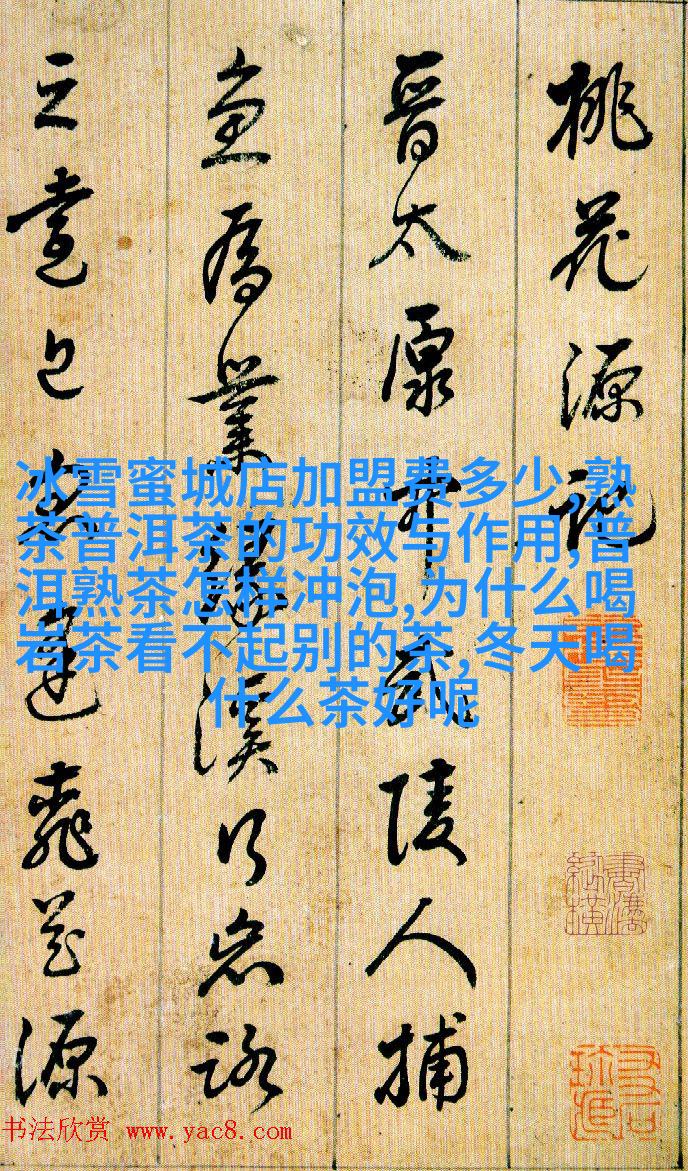 桃花源記
晉太原中武陵人捕
魚為業緣溪行忘路
之遠近忽逢桃花源
冰雪蜜城店加盟费多少,熟
茶普洱茶的功效与作用,普
洱熟茶怎样冲泡,为什么喝
岩茶看不起别的茶,冬天喝
什么茶好呢
书法欣赏 www.yac8.com